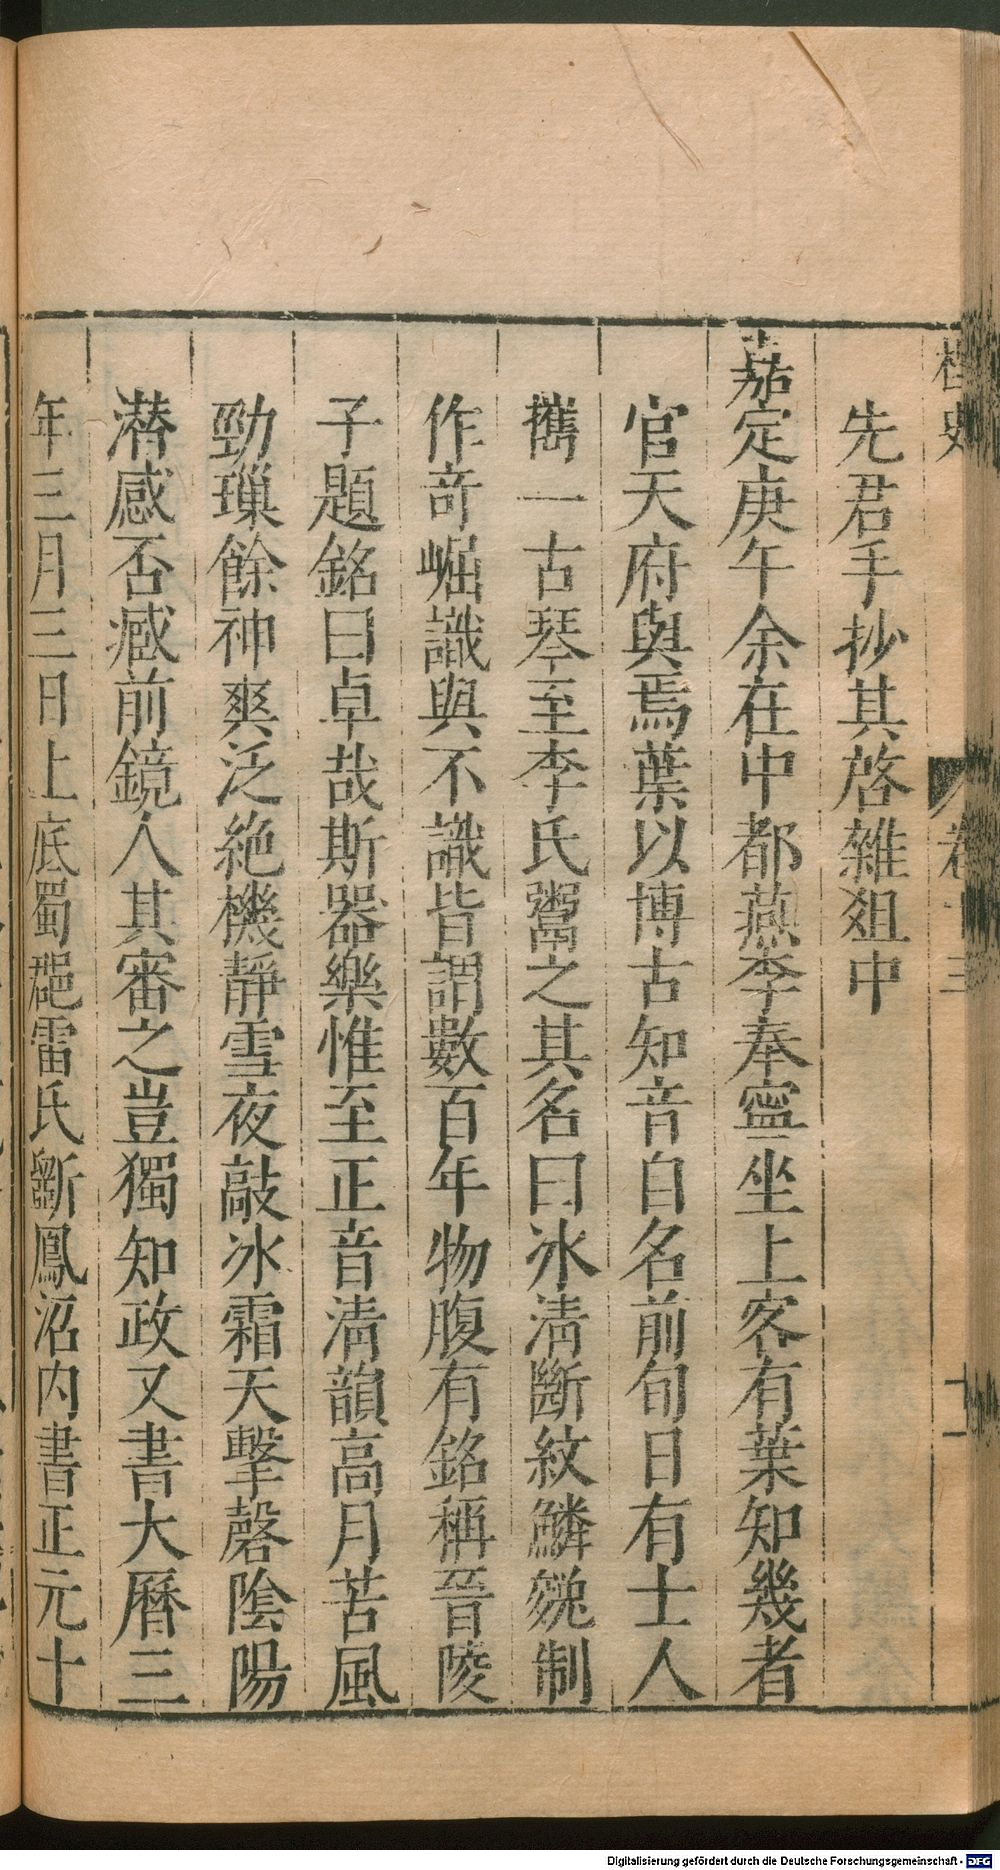 桯史
卷十三
十一
先君手抄其啓雜爼中
嘉定庚午余在中都燕李奉寧坐上客有葉知幾者
官天府與焉葉以博古知音自名前旬日有士人
携一古琴至李氏鬻之其名曰冰清斷紋鱗皴制
作竒崛識與不識皆謂數百年物腹有銘稱晉陵
子題銘曰卓哉斯器樂惟至正音清韻高月苦風
勁璅餘神爽泛絶機靜雪夜敲冰霜天擊磬陰陽
潜感否臧前鏡人其審之豈獨知政又書大曆三
年三月三日上底蜀郡雷氏斵鳳沼内書正元十
Digitalisierung gefördert durch die Deutsche Forschungsgemeinschaft - DFG